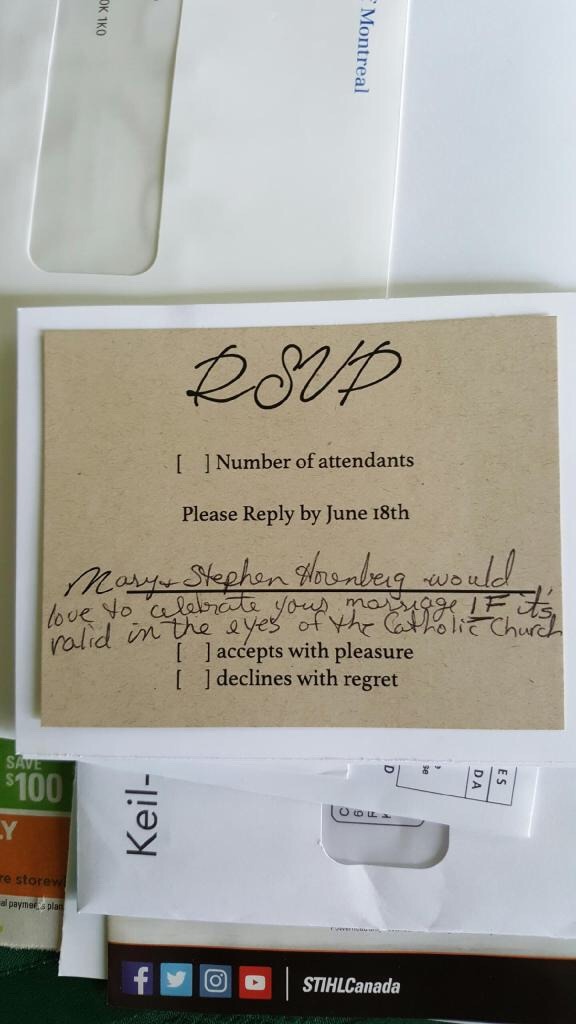 0K 1K0
f Montreal
RSVP
[ ] Number of attendants
Please Reply by June 18th
Mary + Stephen Horenberg would
love to celebrate your marriage IF it's
valid in the eyes of the Catholic Church
[ ] accepts with pleasure
[ ] declines with regret
SAVE
$100
LY
re storew
al payments plan
Keil-
ES
DA
se
D
STIHLCanada